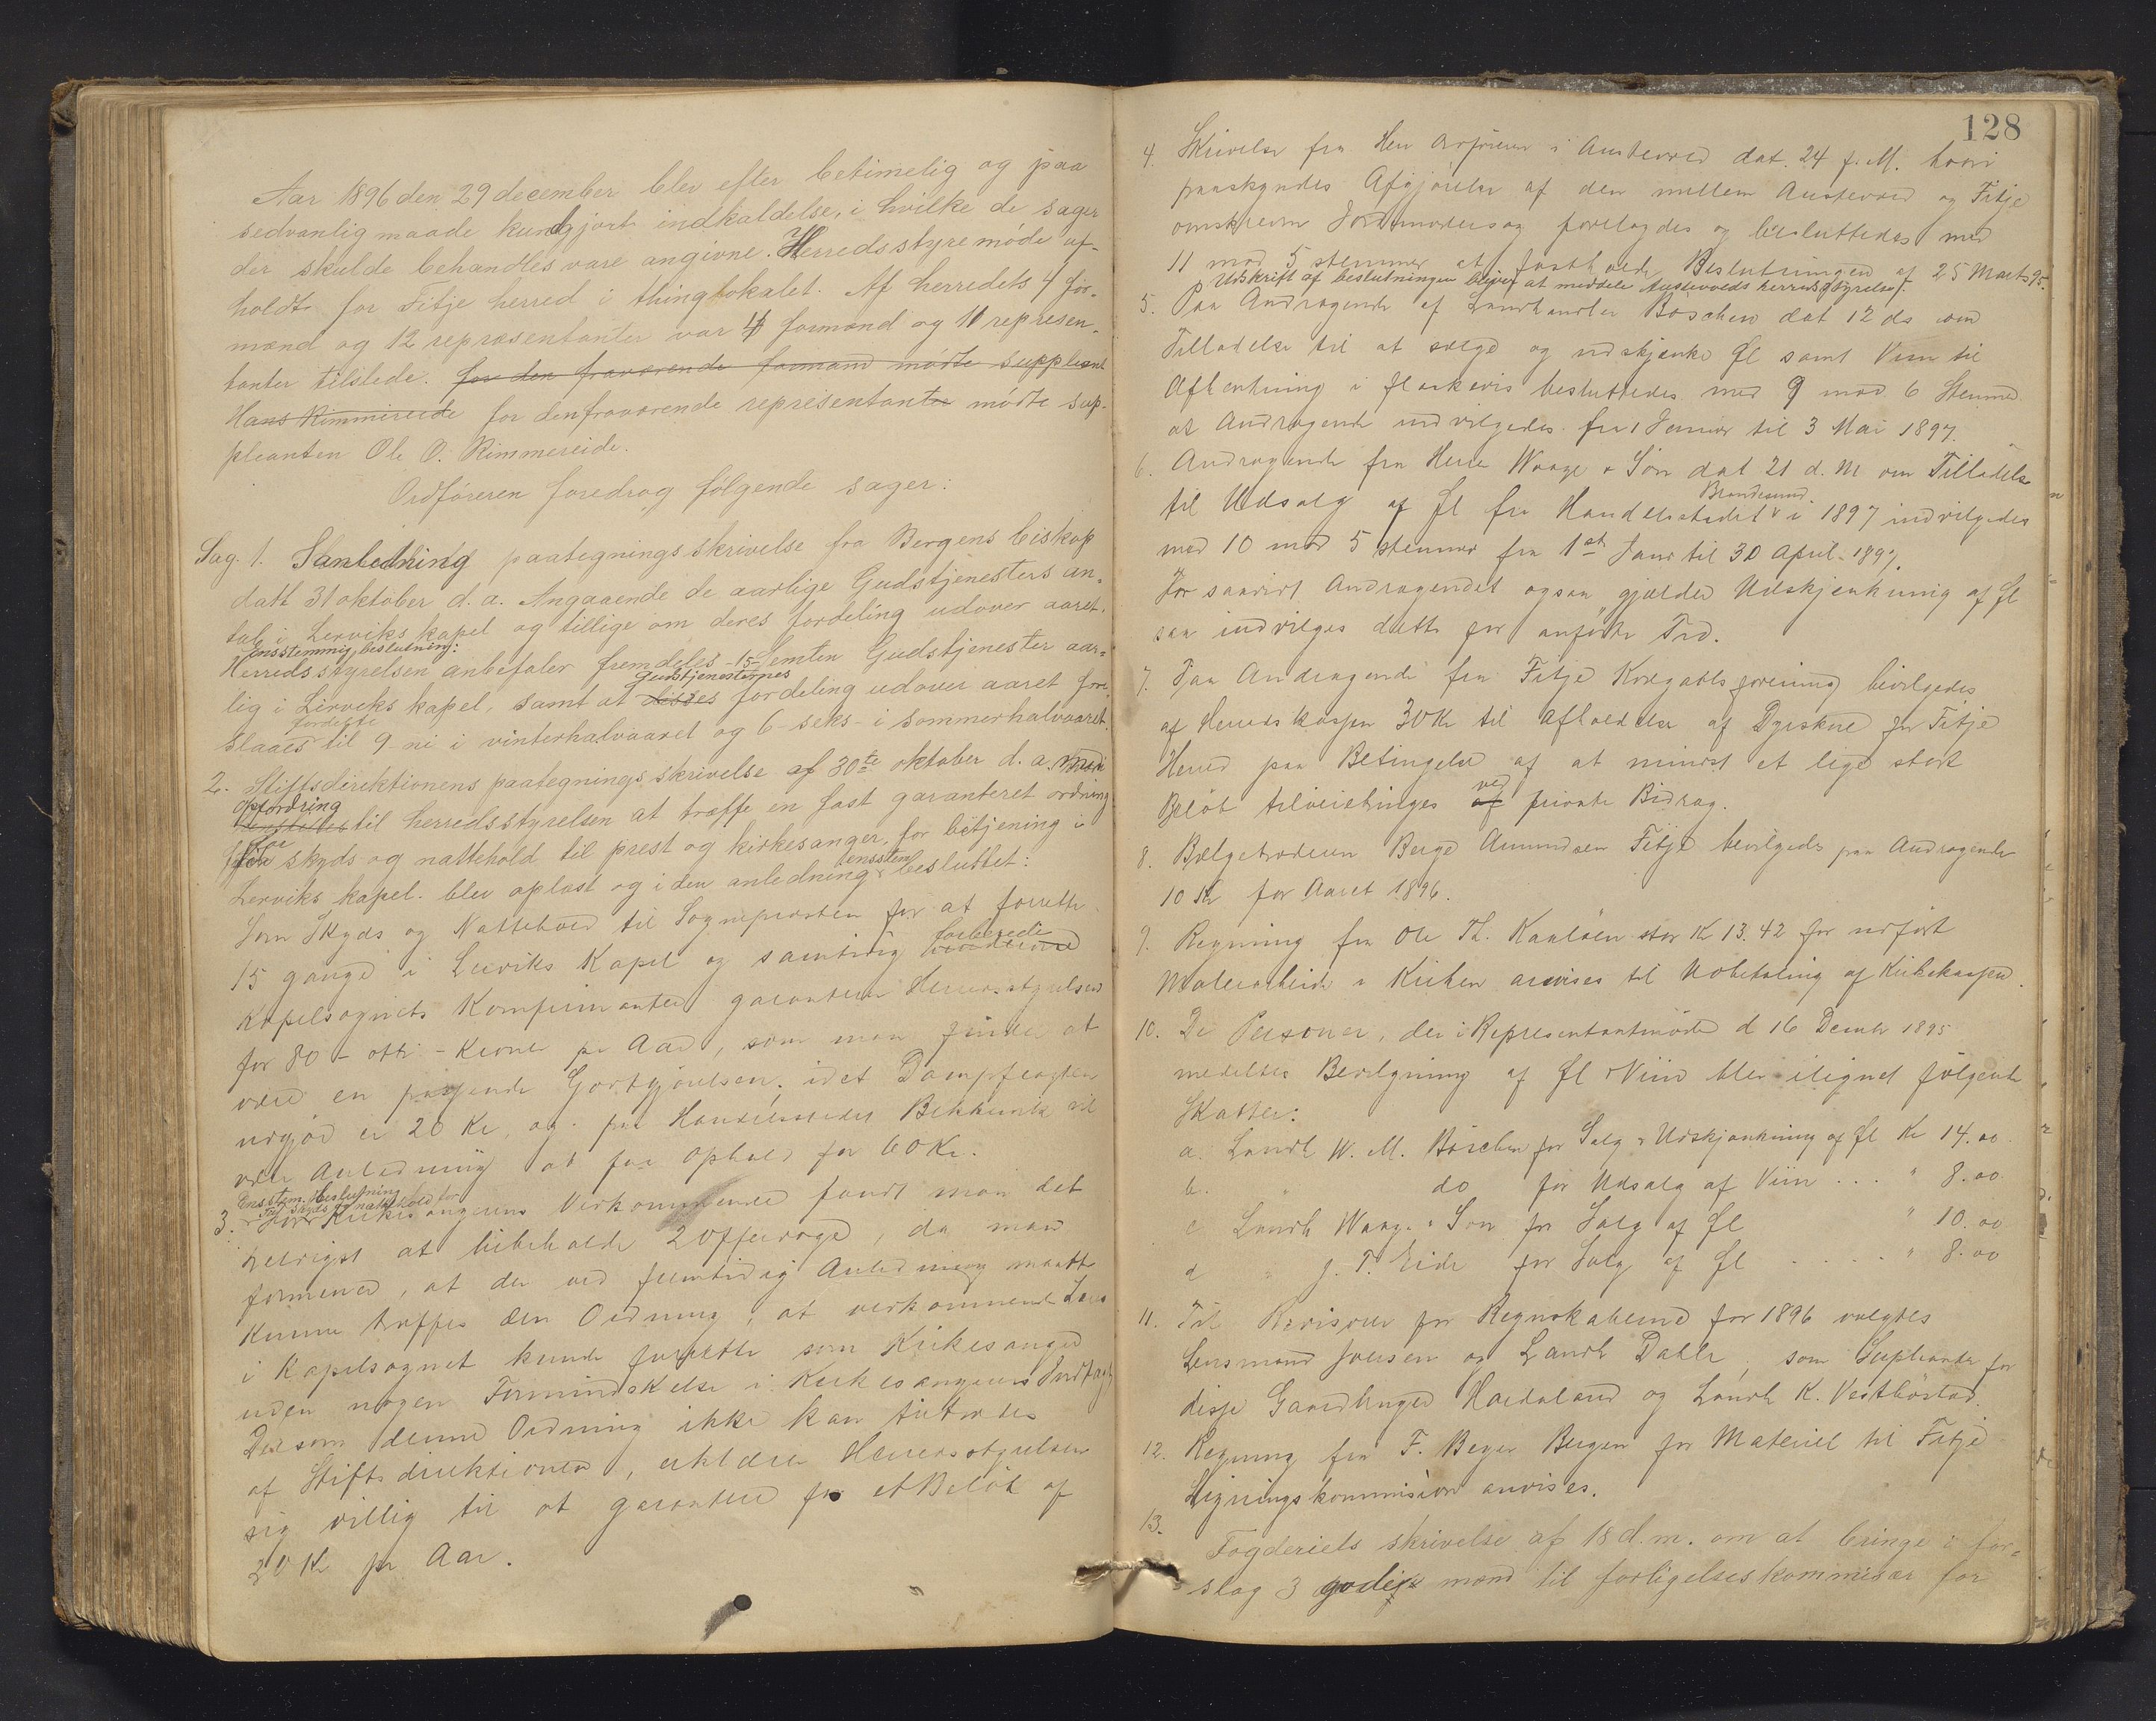 Aar 1896 den 29 december blev efter betimelig og paa
sedvanlig maade kundgjort indkaldelse, i hvilke de sager
der skulde behandles vare angivne. Herredsstyremøde af-
holdt for Fitje herred i thinglokalet. Af herredets 4 for-
mænd og 12 repræsentanter var 4 formænd og 11 represen-
tanter tilstede. for den fraværende formand mødte suppleant
Hans Rimmereide for den fraværende representant mødte sup-
pleanten Ole O. Rimmereide.
Ordføreren foredrog følgende sager:
Sag. 1. I anledning paategningsskrivelse fra Bergens biskop
datt 31 oktober d. a. Angaaende de aarlige Gudstjenesters an-
tal i Lerviks kapel og tillige om deres fordeling udover aaret.
Ensstemmig beslutning:
Herredsstyrelsen anbefaler fremdeles -15- femten Gudstjenester aar-
lig i Lerviks kapel, samt at disses gudstjenesternes fordeling udover aaret fore-
slaaes fordelte til 9 ni i vinterhalvaaret og 6 - seks - i sommerhalvaaret.
2. Stiftsdirektionens paategningsskrivelse af 30te oktober d. a. med
opfordring til herredsstyrelsen at træffe en fast garanteret ordning
for skyds og nattehold til prest og kirkesanger, for betjening i
Lerviks kapel. blev oplæst og i den anledning ensstem besluttet:
Som Skyds og Nattehold til Sognepresten for at forrette
15 gange i Lerviks Kapel og samtidig forberede
Kapelsognets Komfirmanter garanterer Herredsstyrelsen
for 80 - otti - Kroner pr Aar, som man finder at
være en passende Godtgjørelse, idet Dampfragten
udgjør er 20 Kr, og paa Handelsstedet Bekkervik vil
være Anledning at faa Ophold for 60 Kr.
Ensstem. beslutning
3. Til skyds og nattehold for Kirkesangerens Vedkommende fandt man det
heldigst at bibeholde 2 Offerdage, da man
formener, at der ved fremtidig Anledning maatte
kunne træffes den Ordning, at vedkommende Lærer
i Kapelsognet kunde forrette som Kirkesanger
uden nogen Formindskelse i Kirkesangerens Indtægt
Dersom denne Ordning ikke kan tiltrædes
af Stiftsdirektionen, erklærer Herredsstyrelsen
sig villig til at garantere for et Beløb af
20 Kr pr Aar.
128
4. Skrivelse fra Herr Ordføreren i Austevoll dat. 24 f. M. hvori
paaskyndes Afgjørelse af den mellem Austevold og Fitje
omskrevne Jordmodersag forelagdes og besluttedes med
11 mod 5 stemmer at fastholde Beslutningen af 25 Marts 95.
Udskrift af beslutningen blive at meddele Austevolds herredsstyrelse.
5. Paa Andragende af Landhandler Böschen dat 12 ds om
Tilladelse til at sælge og udskjænke Øl samt Viin til
Afhentning i flaskevis besluttedes med 9 mod 6 Stemmer
at Andragende indvilgedes fra 1 Januar til 3 Mai 1897.
6. Andragende fra Herre Waage & Søn dat 21 d. M om Tilladelse
til Udsalg af Øl fra Handelsstedet Brandesund i 1897 indvilgedes
med 10 mod 5 stemmer fra 1st Januar til 30 April 1897.
For saavidt Andragendet ogsaa gjælder Udskjænkning af Øl
saa indvilges dette for anførte Tid.
7. Paa Andragende fra Fitje Kvegavlsforening bevilgedes
af Herredskassen 30 Kr til Afholdelse af Dyrskue for Fitje
Herred paa Betingelse af at mindst et lige stort
Beløb tilveiebringes af ved private Bidrag.
8. Bælgetræderen Berge Amundsen Fitje bevilgedes paa Andragende
10 Kr for Aaret 1896.
9. Regning fra Ole Th. Kauløen stor Kr 13.42 for udført
Malerarbeide i Kirken anvises til Udbetaling af Kirkekassen.
10. De Personer, der i Representantmøde d 16 Decembr 1895
meddeltes Bevilgning af Øl & Viin blev ilignet følgende
Skatter:
a. Landh W. M. Böschen for Salg & Udskjænkning af Øl Kr 14.00
b. " do for Udsalg af Viin . . . " 8.00
c Landh Waage & Søn for Salg af Øl " 10.00
d " J. T. Eide for Salg af Øl . . . . " 8.00
11. Til Revisorer for Regnskaberne for 1896 valgtes
Lensmand Iversen og Landh Dahle som Suppleanter for
disse Gaardbruger Hordaland og Landh K. Vestbøstad.
12. Regning fra F. Beyer Bergen for Materiel til Fitje
Ligningskommision anvises.
13. Fogderiets skrivelse af 18 d.m. om at bringe i for-
slag 3 mænd til forligelseskommisær for